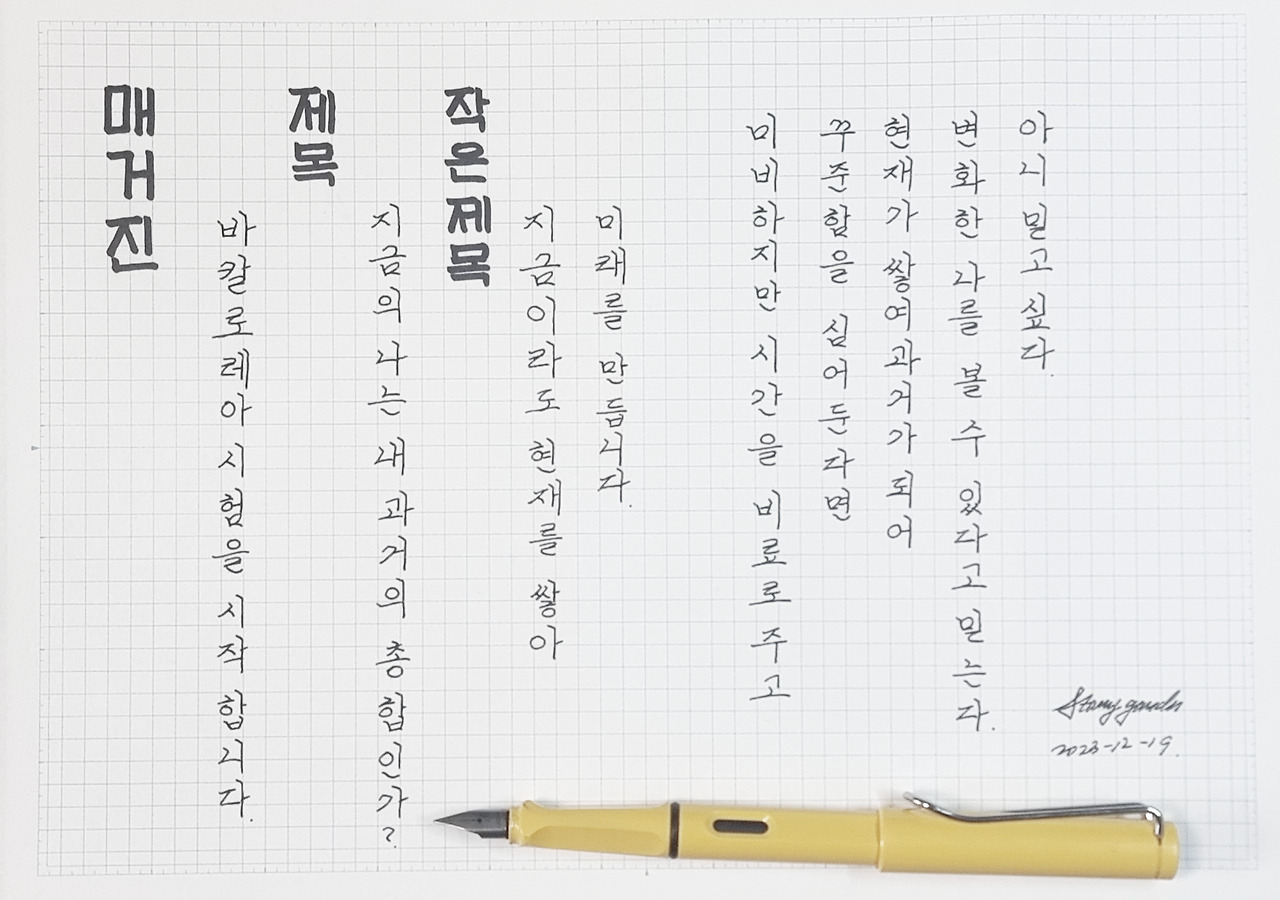 매거진
바칼로레아 시험을 시작 합니다.
제목
지금의 나는 내 과거의 총합인가?
작은제목
지금이라도 현재를 쌓아
미래를 만듭니다.
미비하지만 시간을 비료로 주고
꾸준함을 심어둔다면
현재가 쌓여과거가 되어
변화한 나를 볼 수 있다고 믿는다.
아니 믿고 싶다.
2023-12-19.